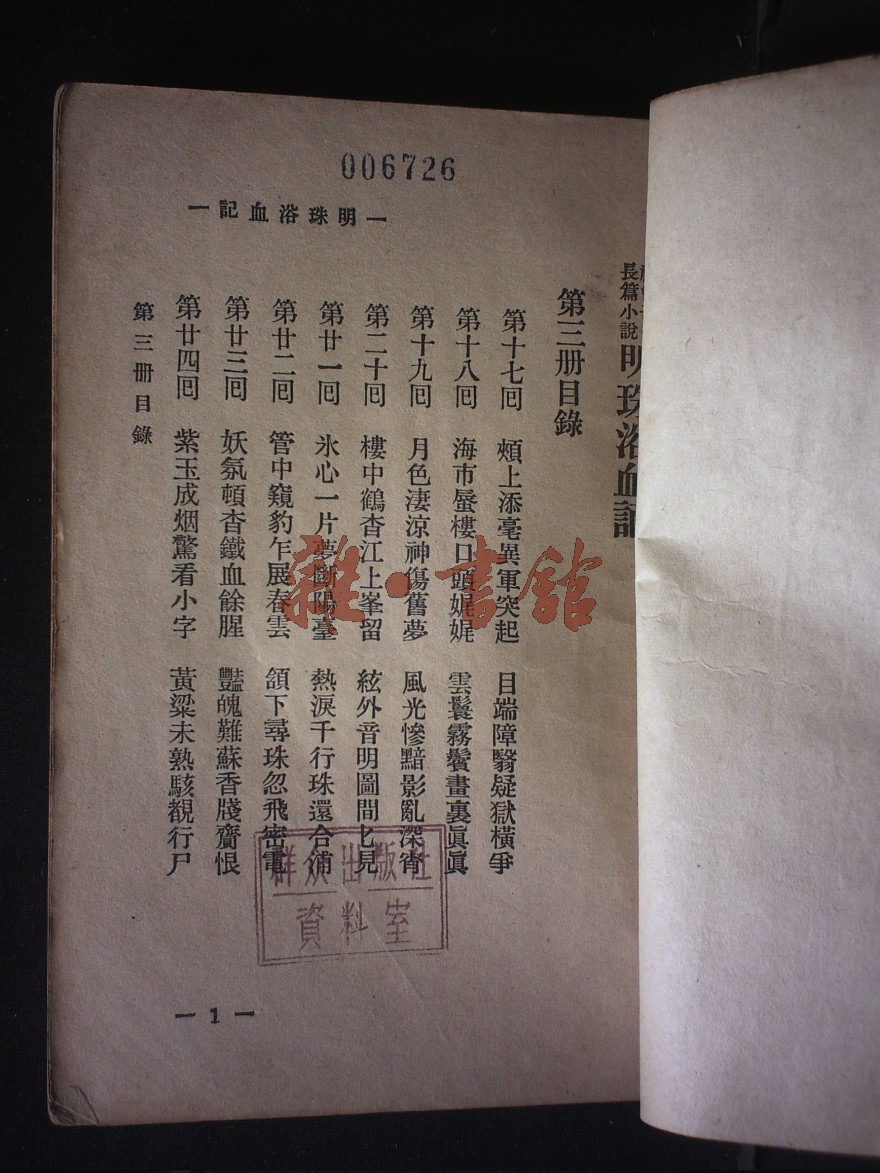 006726
一記血浴珠明一
長篇小說
明珠浴血記
第三册目錄
第十七囘 頰上添毫異軍突起 目端障翳疑獄橫爭
第十八囘 海市蜃樓口頭娓娓 雲鬟霧鬢畫裏眞眞
第十九囘 月色淒涼神傷舊夢 風光慘黯影亂深宵
第二十囘 樓中鶴杳江上峯留 絃外音明圖間匕見
第廿一囘 氷心一片夢斷陽臺 熱淚千行珠還合浦
第廿二囘 管中窺豹乍展春雲 頷下尋珠忽飛密電
第廿三囘 妖氛頓杳鐵血餘腥 豔魄難蘇香牋齎恨
第廿四囘 紫玉成烟驚看小字 黃粱未熟駭觀行尸
第三册目錄
一1一
雜·書館
群众出版社
資料室